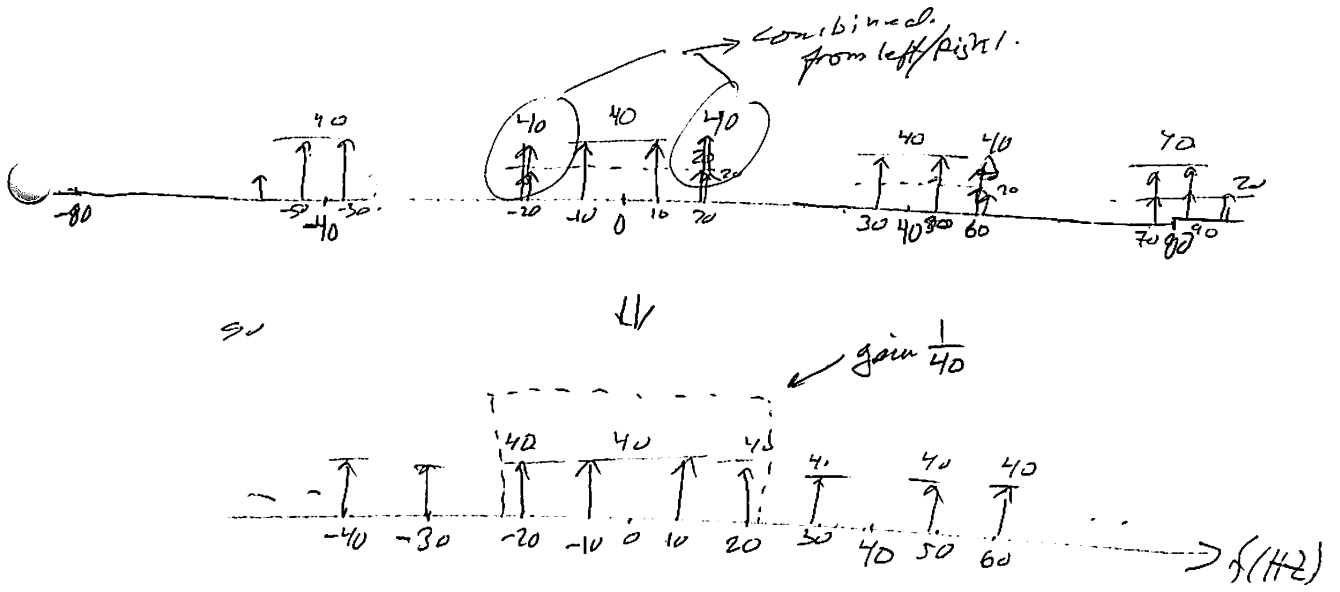 combined.
from left/right.
40 40 40 40 40 40 40
20 20 20 20
-80 -50 -40 -30 -20 -10 0 10 20 30 40 60 70 80 90
gain 1/40
40 40 40 40 40 40
-40 -30 -20 -10 0 10 20 30 40 50 60 f(HZ)